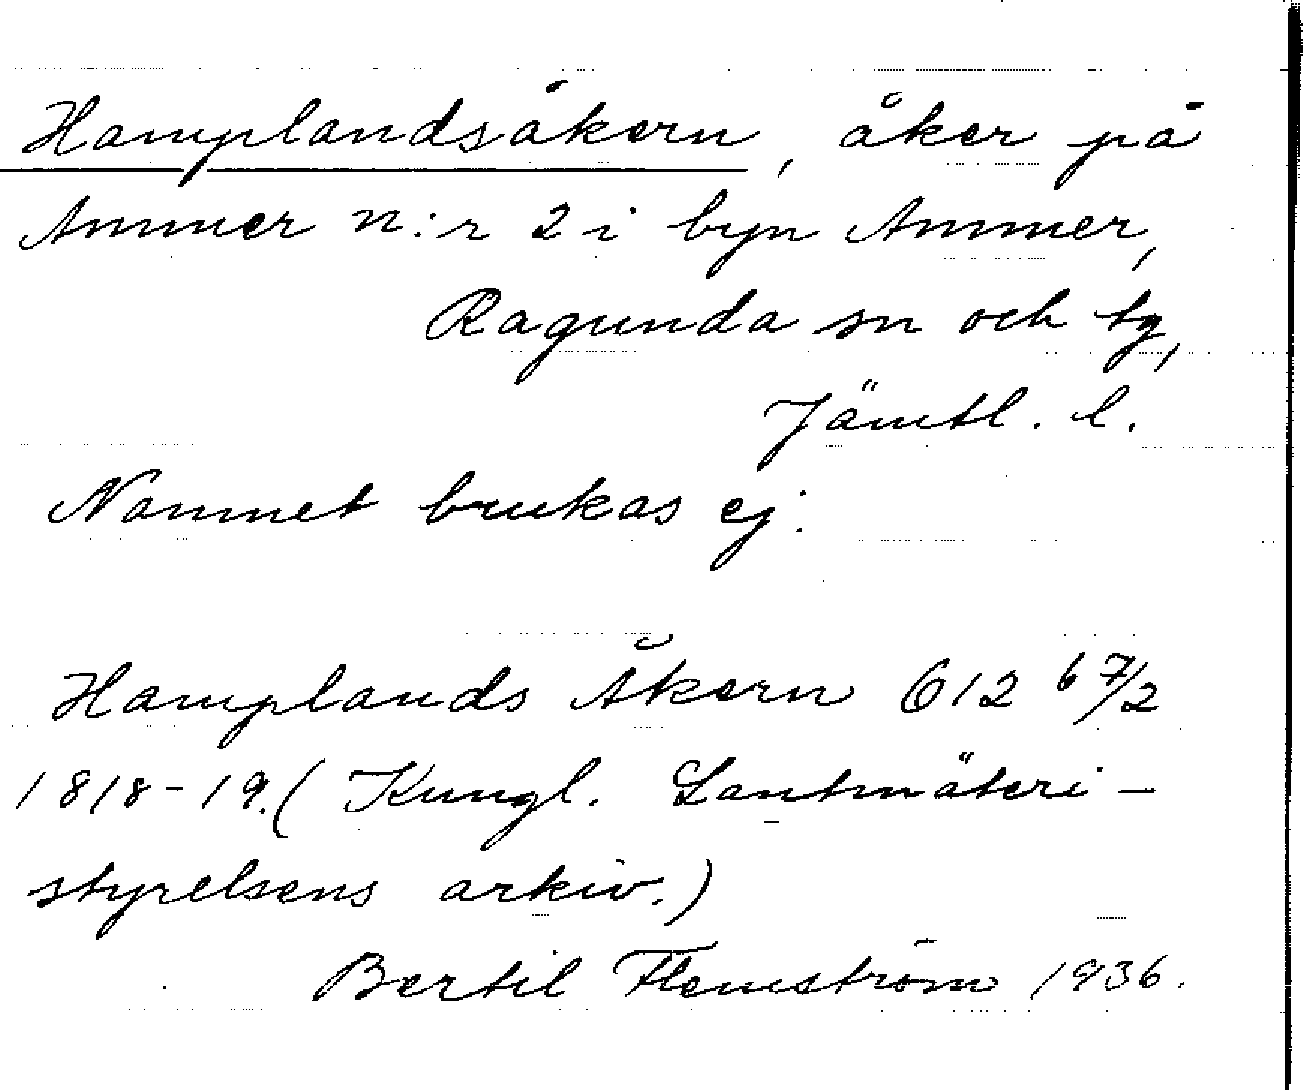 Hamplandsåkern, åker på
Ammer n:r 2 i byn Ammer,
Ragunda sn och tg,
Jämtl. l.
Namnet brukas ej.
Hamplands Åkern 612 b 7/2
1818-19. (Kungl. Lantmäteri-
styrelsens arkiv.)
Bertil Flemström 1936.